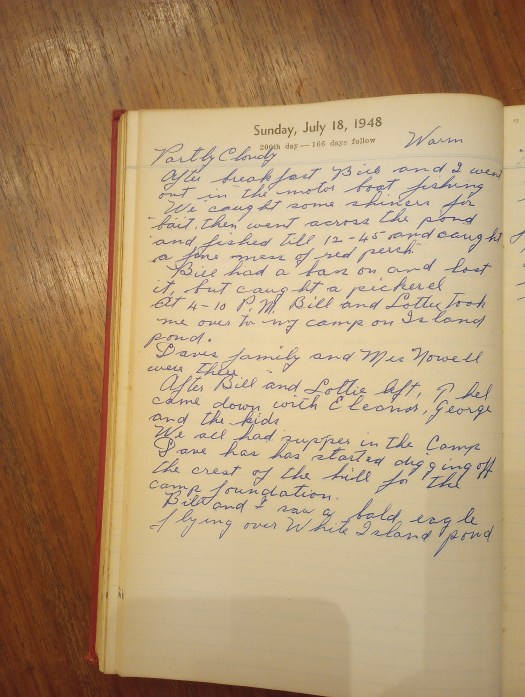 Sunday, July 18, 1948
200th day — 166 days follow
Partly Cloudy Warm
After breakfast Bill and I went
out in the motor boat fishing
We caught some shiners for
bait, then went across the pond
and fished till 12-45 and caught
a fine mess of red perch.
Bill had a bass on and lost
it, but caught a pickerel
At 4-10 P.M. Bill and Lottie took
me over to my camp on Island
pond.
Daves family and Mrs Nowell
were there
After Bill and Lottie left,
came down with Eleanor, George
and the kids
We all had supper in the Camp
Dave has has started digging off
the crest of the hill for the
camp foundation.
Bill and I saw a bald eagle
flying over White Island pond